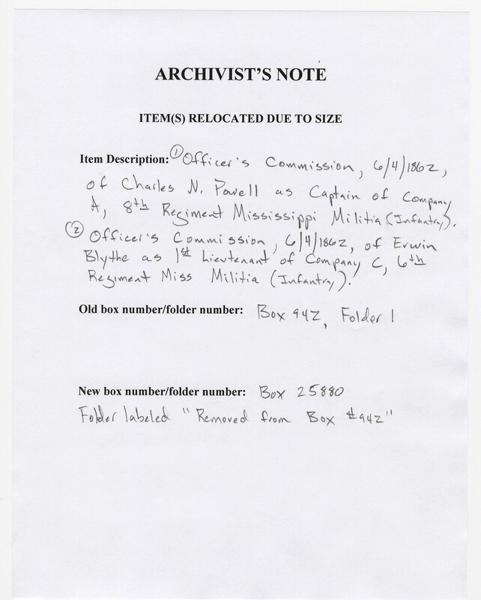 ARCHIVIST'S NOTE
ITEM(S) RELOCATED DUE TO SIZE
Item Description: ① Officer's Commission, 6/4/1862,
of Charles N. Powell as Captain of Company
A, 8th Regiment Mississippi Militia (Infantry).
② Officer's Commission, 6/4/1862, of Erwin
Blythe as 1st Lieutenant of Company C, 6th
Regiment Miss Militia (Infantry).
Old box number/folder number: Box 942, Folder 1
New box number/folder number: Box 25880
Folder labeled "Removed from Box #942"